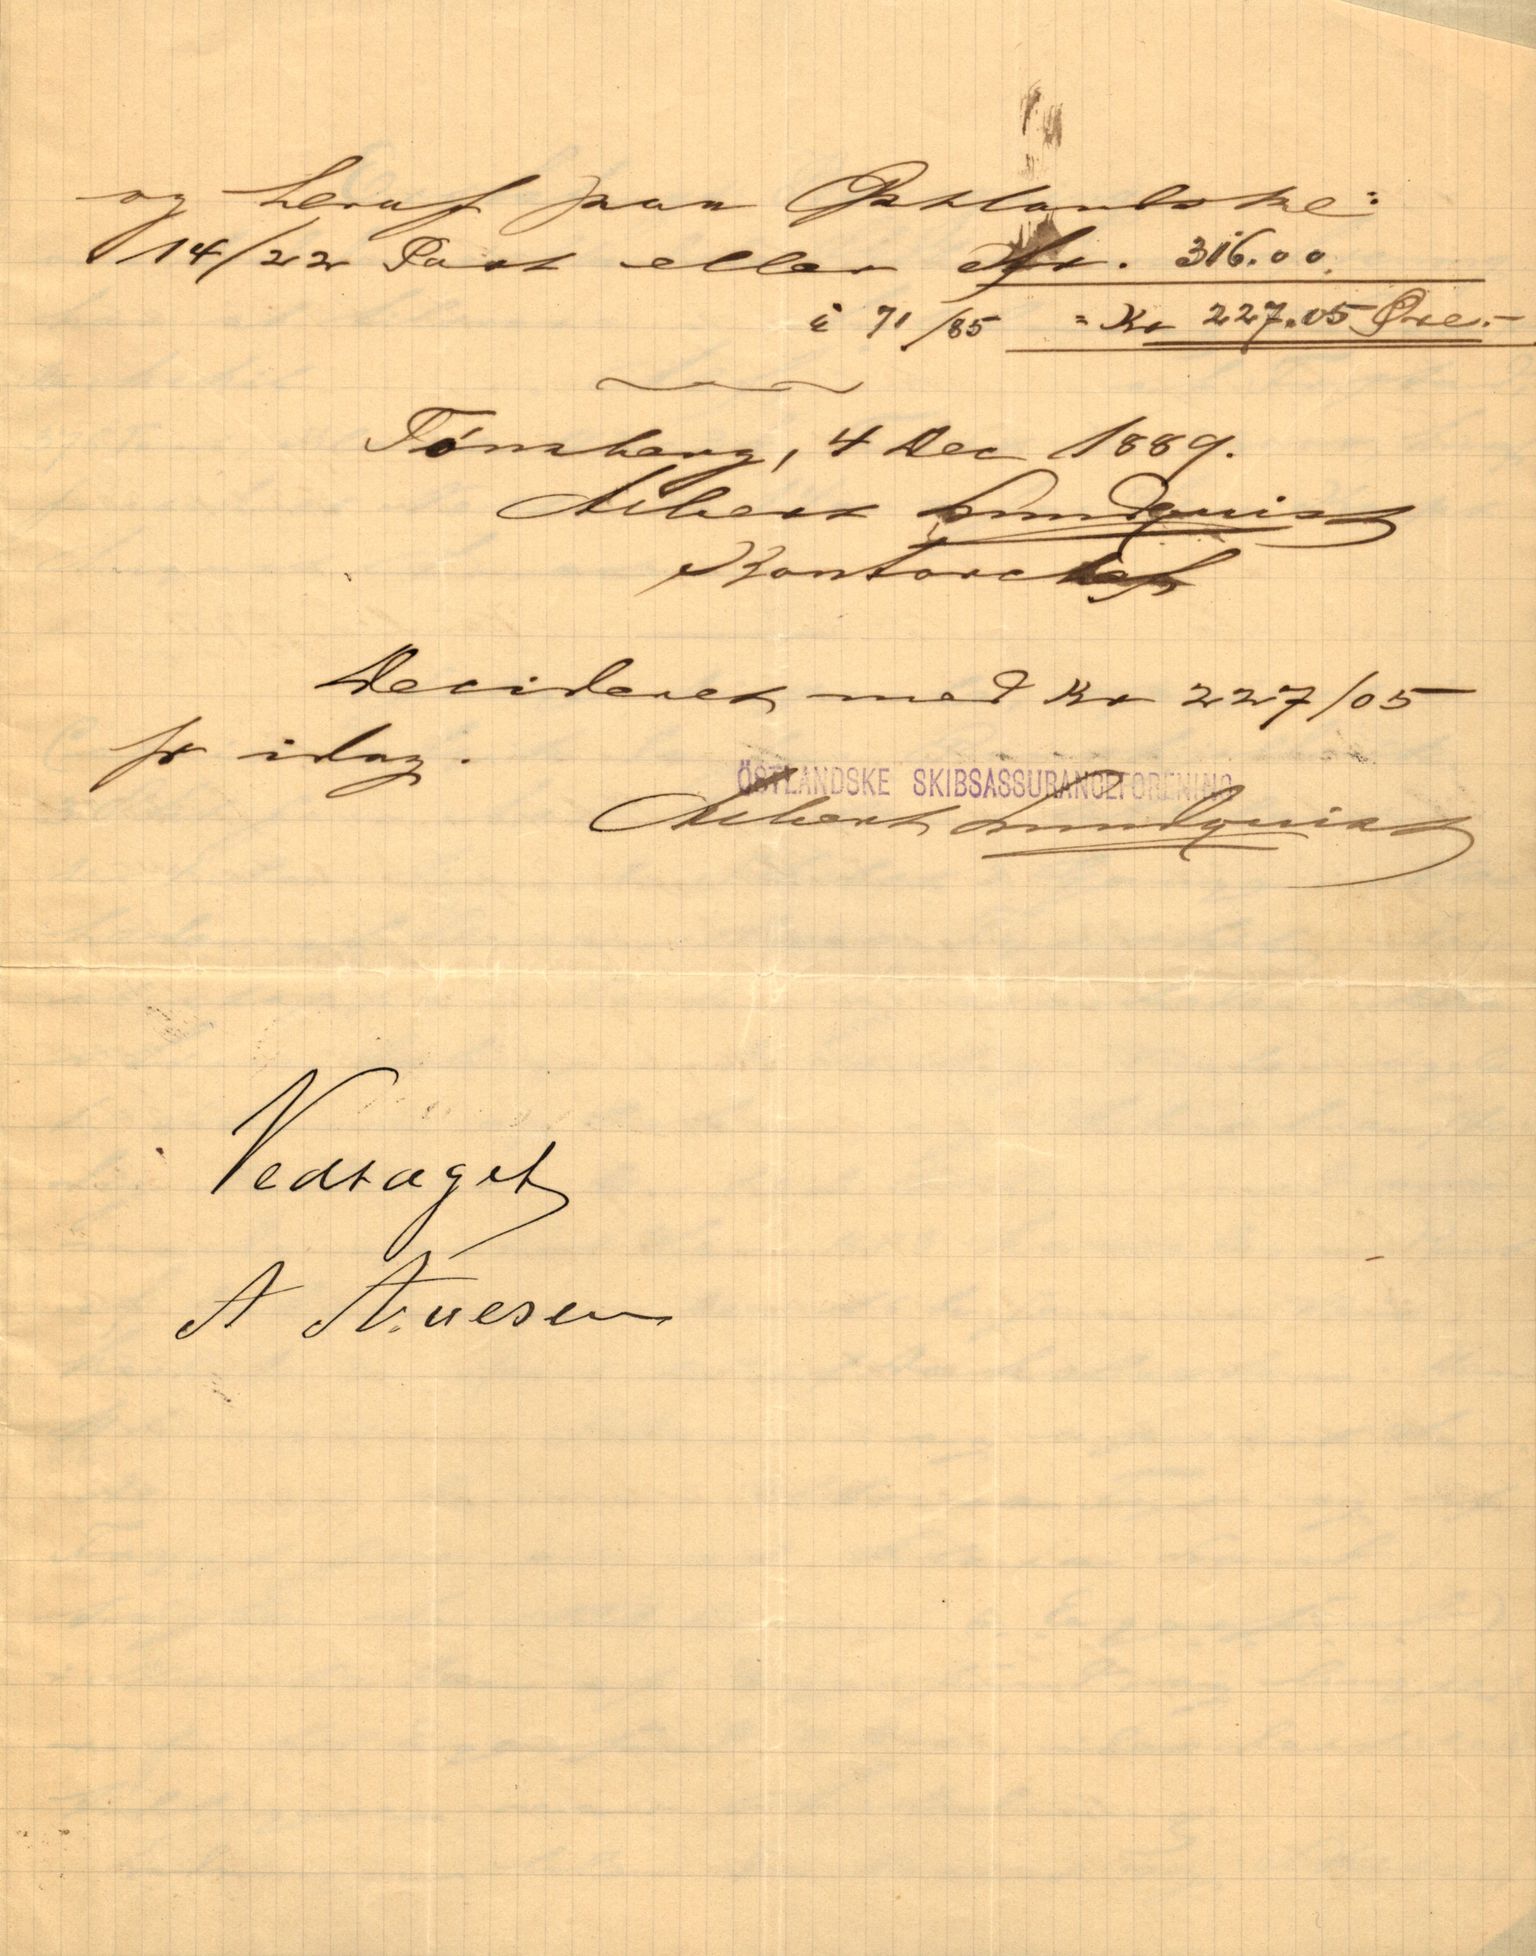 og heraf paa Østlandske:
14/22 Part eller Fr. 316.00
i 71/85 = Kr 227.05 Øre.-
Tønsberg, 4 Dec 1889.
Albert Lundquist
Kontorchef
Decideret med Kr 227/05
pr idag.
ÖSTLANDSKE SKIBSASSURANCEFORENING
Albert Lundquist
Vedtaget
A